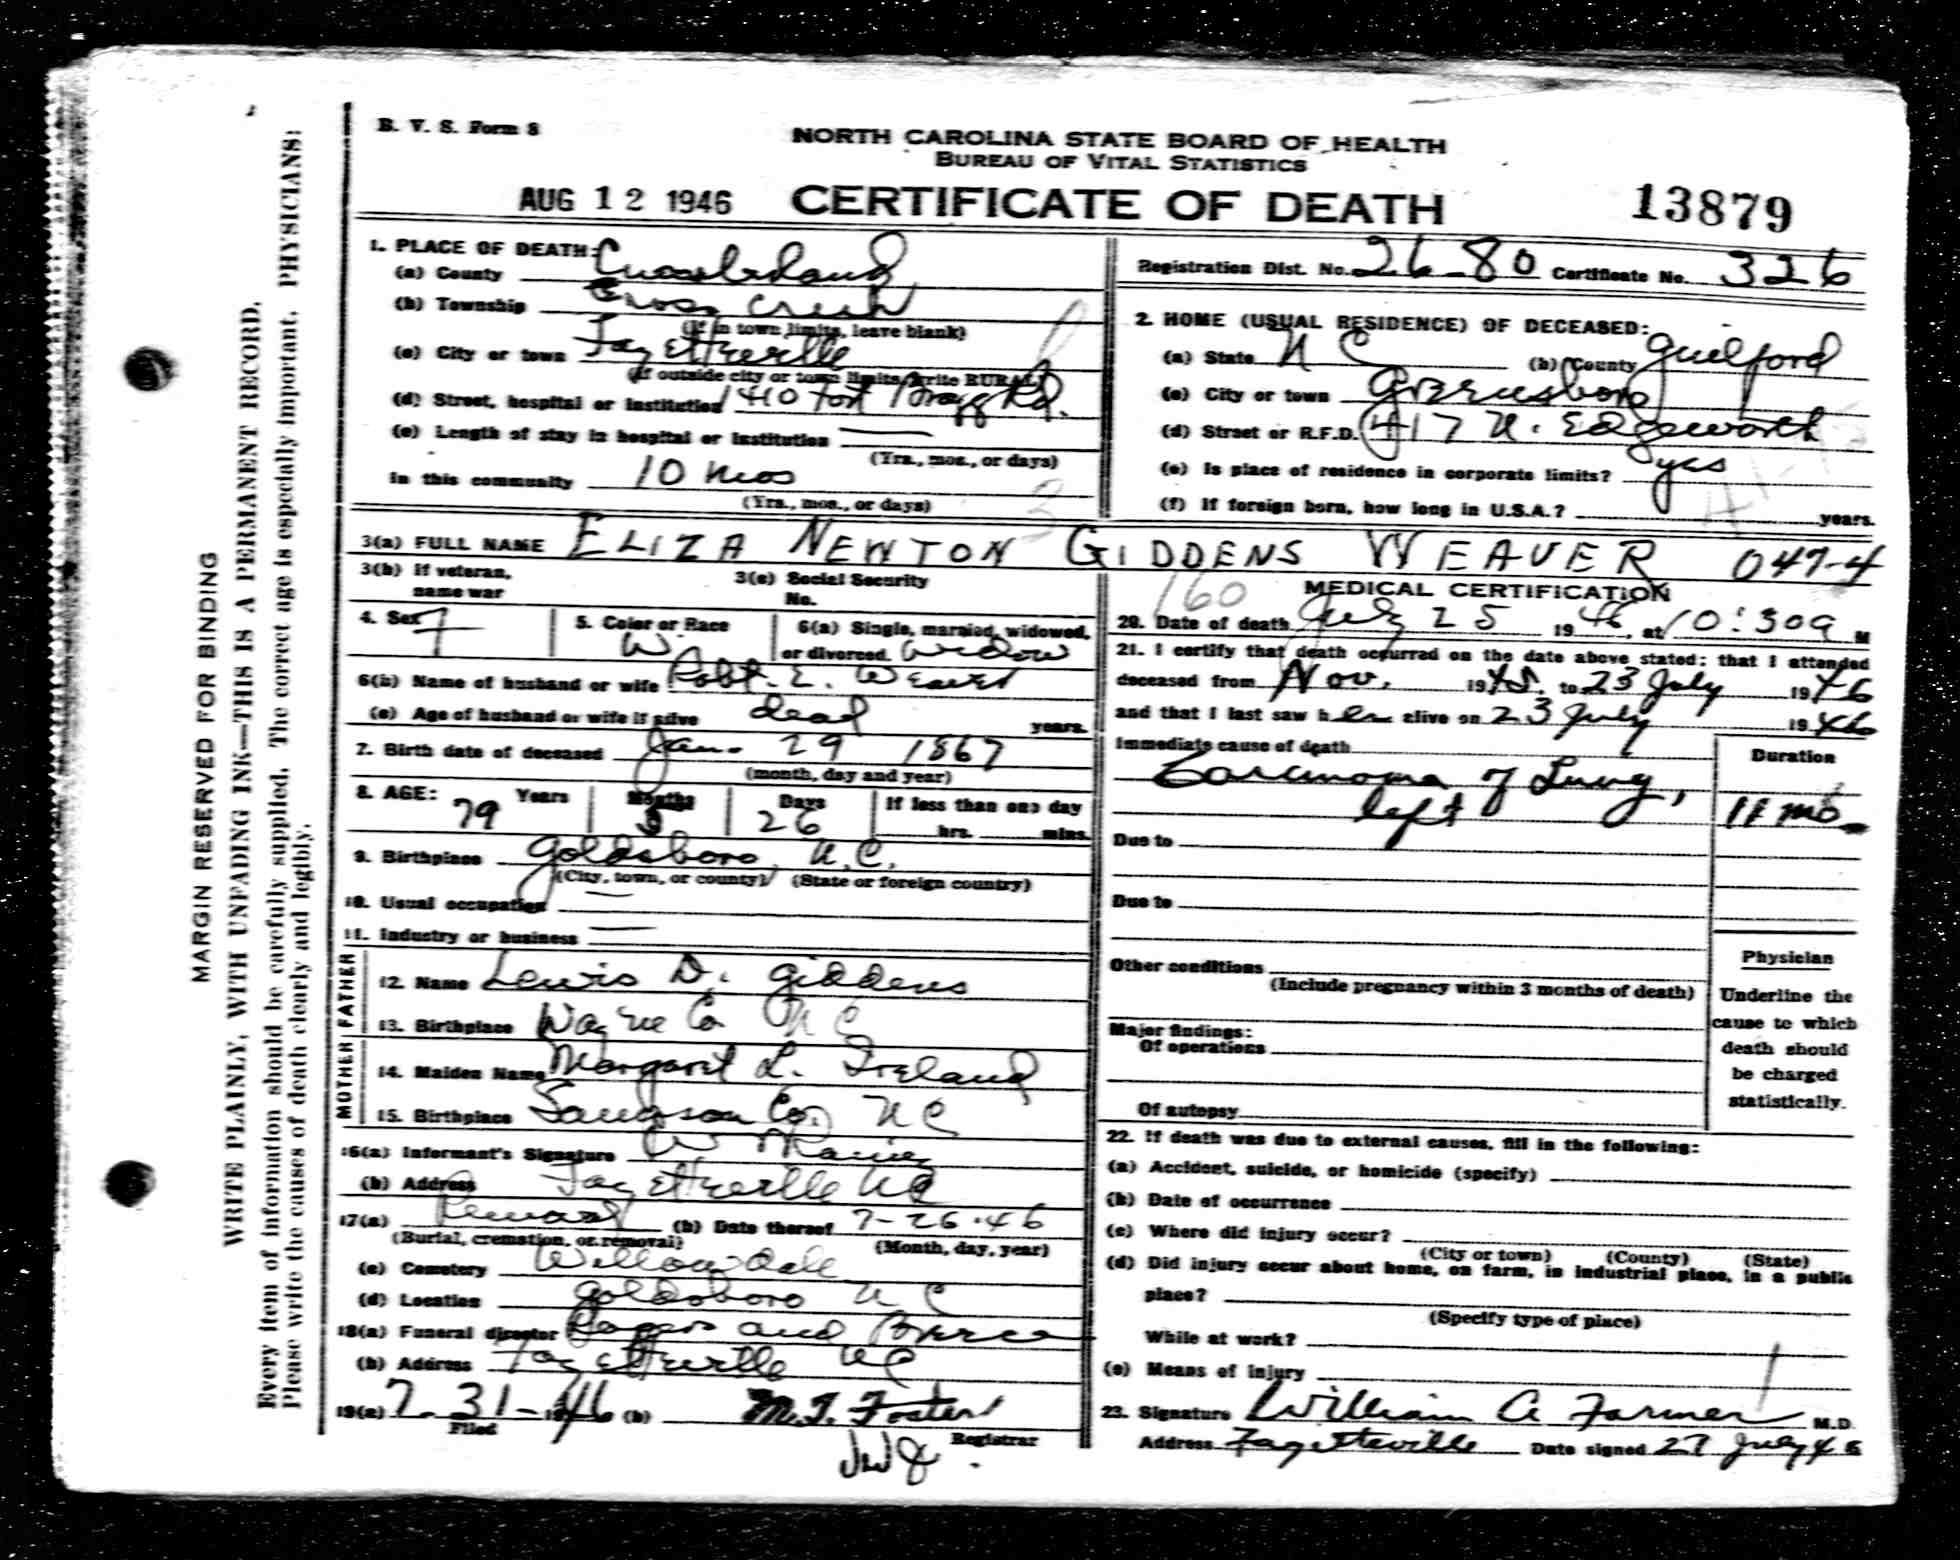 B. V. S. Form 8
NORTH CAROLINA STATE BOARD OF HEALTH
BUREAU OF VITAL STATISTICS
AUG 12 1946 CERTIFICATE OF DEATH 13879
MARGIN RESERVED FOR BINDING
WRITE PLAINLY, WITH UNFADING INK—THIS IS A PERMANENT RECORD.
Every item of information should be carefully supplied. The correct age is especially important. PHYSICIANS:
Please write the causes of death clearly and legibly.
1. PLACE OF DEATH:
(a) County Cumberland
(b) Township Cross Creek
(If in town limits, leave blank)
(c) City or town Fayetteville
(If outside city or town limits, write RURAL)
(d) Street, hospital or institution 1410 Fort Bragg Rd.
(e) Length of stay in hospital or institution —
(Yrs., mos., or days)
In this community 10 mos
(Yrs., mos., or days)
Registration Dist. No. 26-80 Certificate No. 326
2. HOME (USUAL RESIDENCE) OF DECEASED:
(a) State N C (b) County Guilford
(c) City or town Greensboro
(d) Street or R.F.D. 417 N. Edgeworth
(e) Is place of residence in corporate limits? yes
(f) If foreign born, how long in U.S.A.? years.
3(a) FULL NAME ELIZA NEWTON GIDDENS WEAVER 047-4
3(b) If veteran, name war
3(c) Social Security No.
4. Sex F
5. Color or Race W
6(a) Single, married, widowed, or divorced. Widow
6(b) Name of husband or wife Robt. E. Weaver
(c) Age of husband or wife if alive dead years.
7. Birth date of deceased Jan. 29 1867
(month, day and year)
8. AGE: 79 Years 5 Months 26 Days If less than one day
hrs. mins.
9. Birthplace Goldsboro, N.C.
(City, town, or county) (State or foreign country)
10. Usual occupation —
11. Industry or business —
FATHER
12. Name Lewis D. Giddens
13. Birthplace Wayne Co N C
MOTHER
14. Maiden Name Margaret L. Ireland
15. Birthplace Sampson Co. N C
16(a) Informant's Signature
(b) Address Fayetteville NC
17(a) Removal (b) Date thereof 7-26-46
(Burial, cremation, or removal) (Month, day, year)
(c) Cemetery Willowdale
(d) Location Goldsboro N C
18(a) Funeral director Rogers and Breece
(b) Address Fayetteville NC
19(a) 7-31-1946 (b) M. T. Foster
Filed Registrar
160 MEDICAL CERTIFICATION
20. Date of death July 25 1946, at 10:30a M
21. I certify that death occurred on the date above stated; that I attended
deceased from Nov. 1945, to 23 July 1946
and that I last saw her alive on 23 July 1946
Immediate cause of death Duration
Carcinoma of Lung,
left 11 mo.
Due to
Due to
Other conditions
(Include pregnancy within 3 months of death)
Major findings:
Of operations
Of autopsy
Physician
Underline the
cause to which
death should
be charged
statistically.
22. If death was due to external causes, fill in the following:
(a) Accident, suicide, or homicide (specify)
(b) Date of occurrence
(c) Where did injury occur?
(City or town) (County) (State)
(d) Did injury occur about home, on farm, in industrial place, in a public
place?
(Specify type of place)
While at work?
(e) Means of injury
23. Signature William A Farmer M.D.
Address Fayetteville Date signed 27 July 46